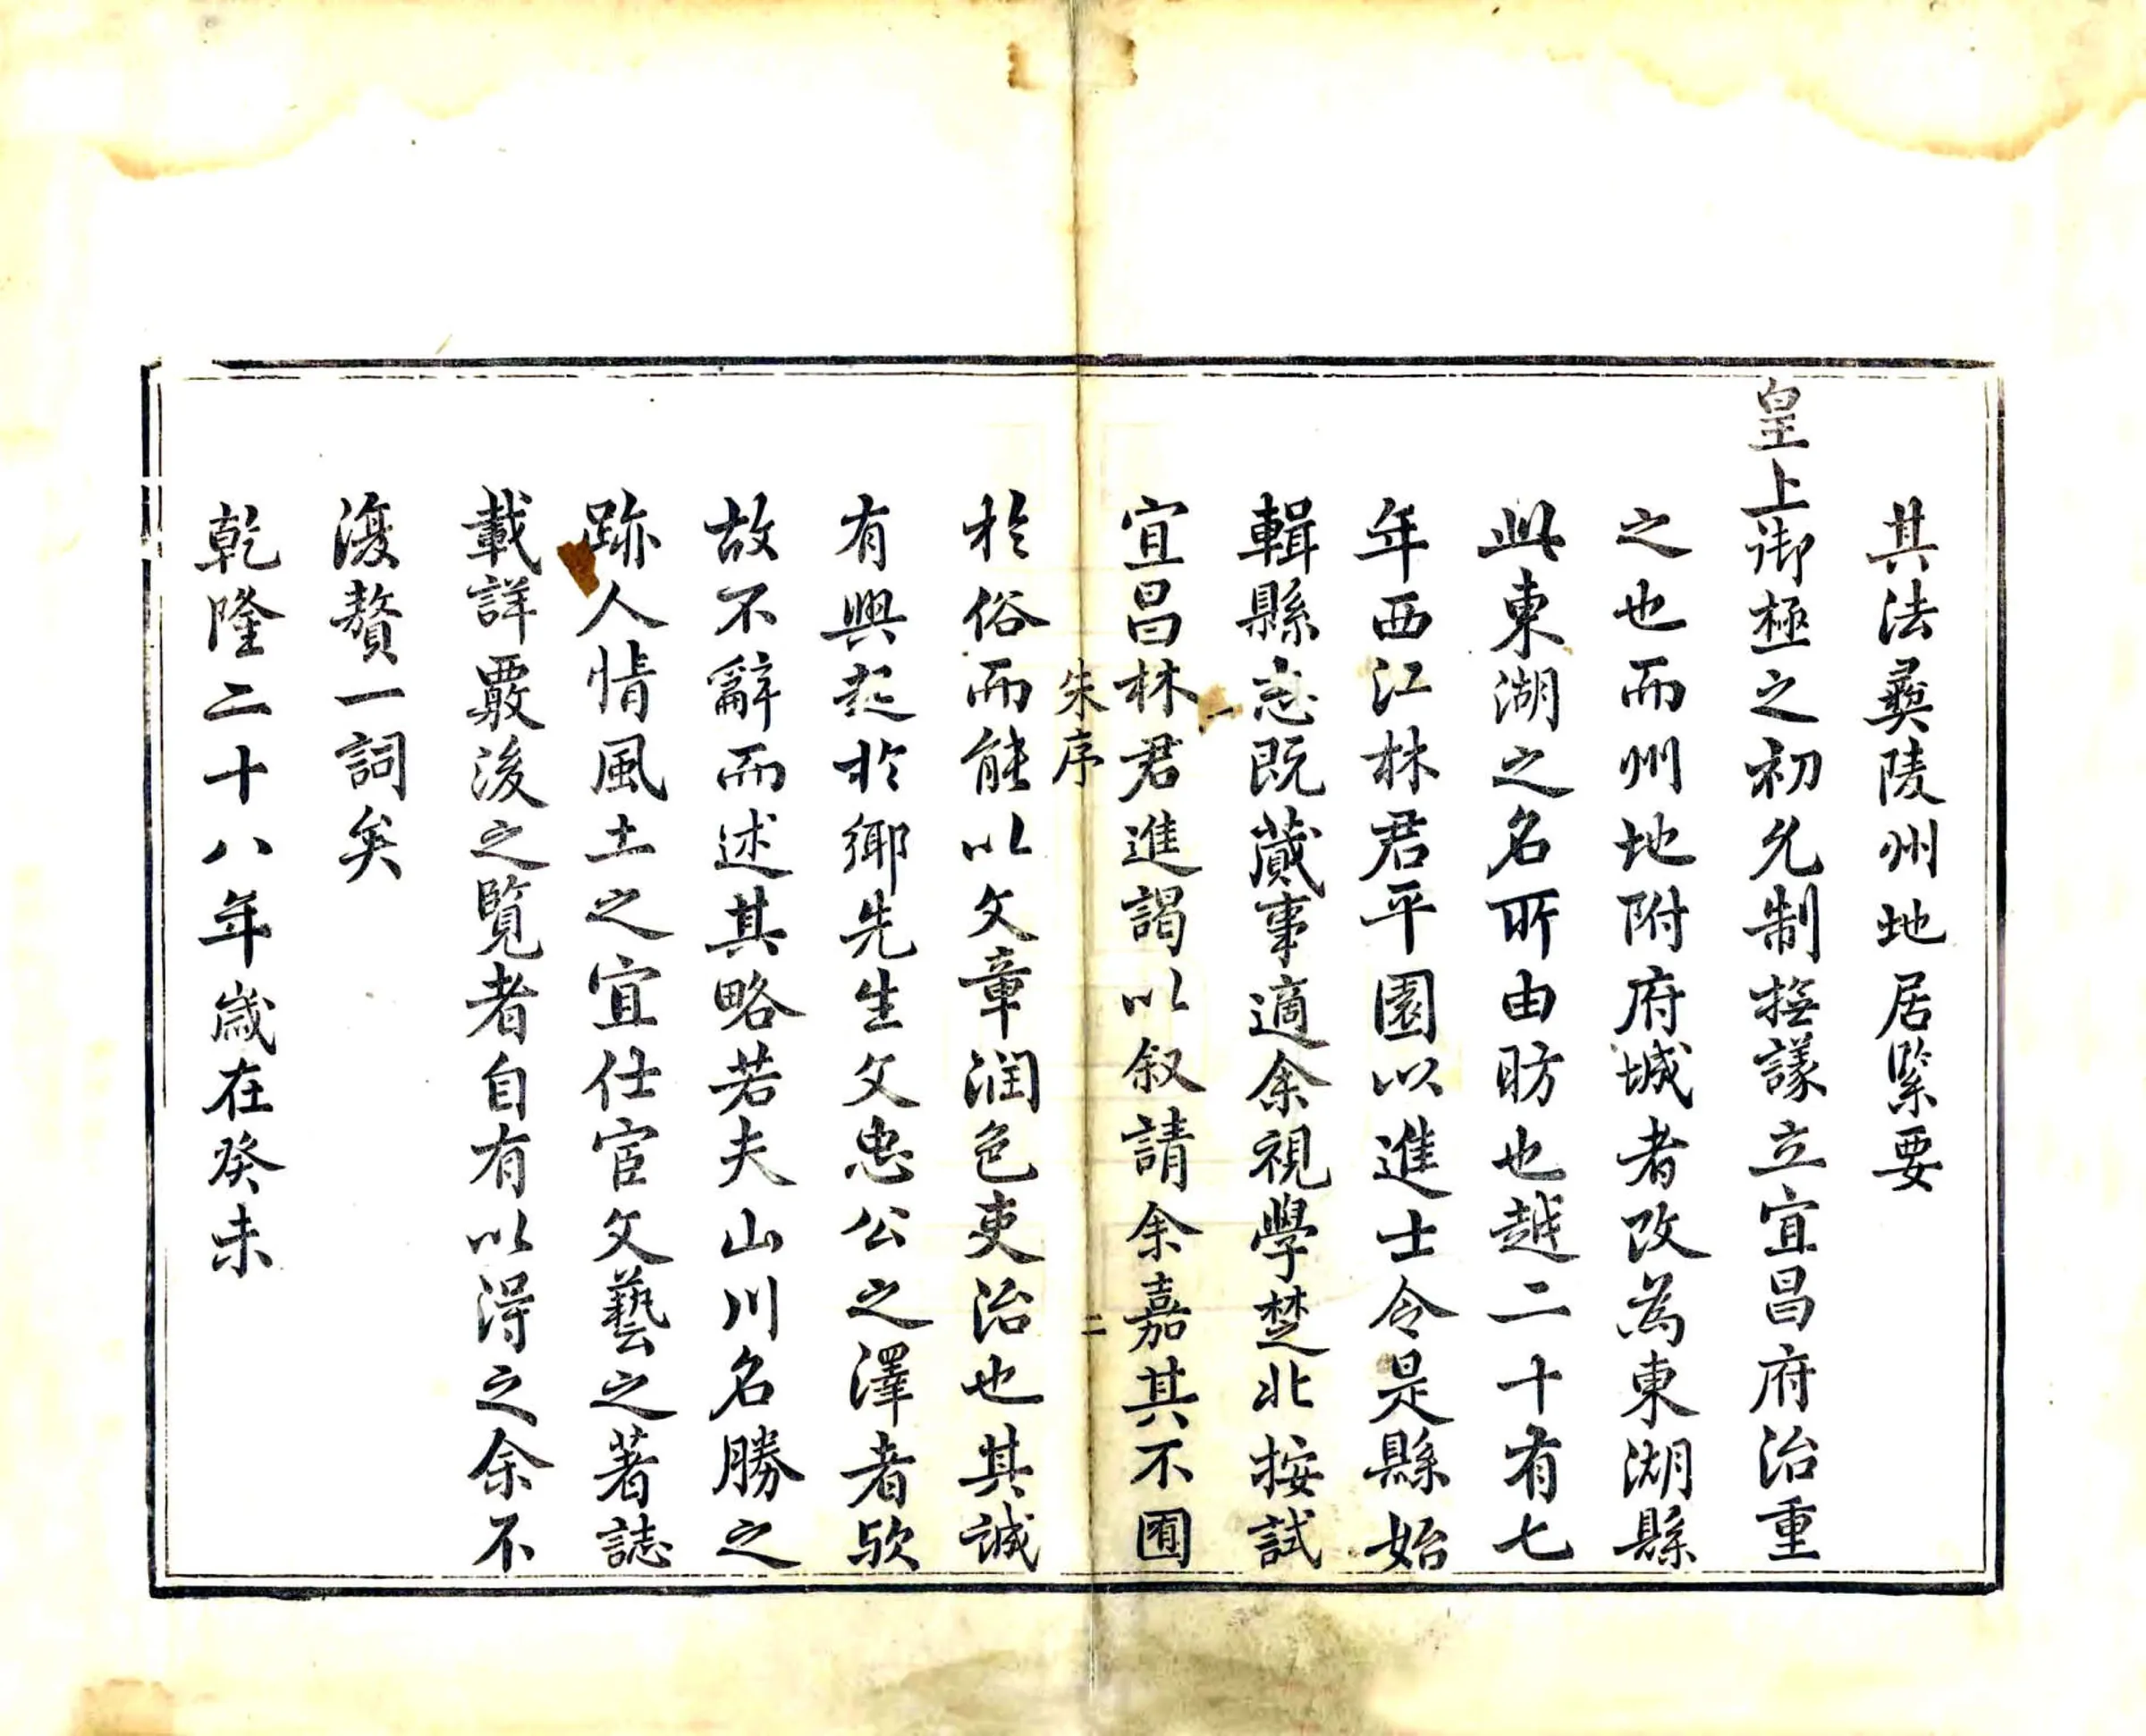 其法彝陵州地居緊要
皇上御極之初允制撫議立宜昌府治重
之也而州地附府城者改為東湖縣
此東湖之名所由昉也越二十有七
年西江林君平園以進士令是縣始
輯縣志既蕆事適余視學楚北按試
宜昌林君進謁以叙請余嘉其不囿
朱序
二
於俗而能以文章潤色吏治也其誠
有興起於鄉先生文忠公之澤者歟
故不辭而述其略若夫山川名勝之
跡人情風土之宜仕宦文藝之著誌
載詳覈後之覧者自有以得之余不
復贅一詞矣
乾隆二十八年歲在癸未